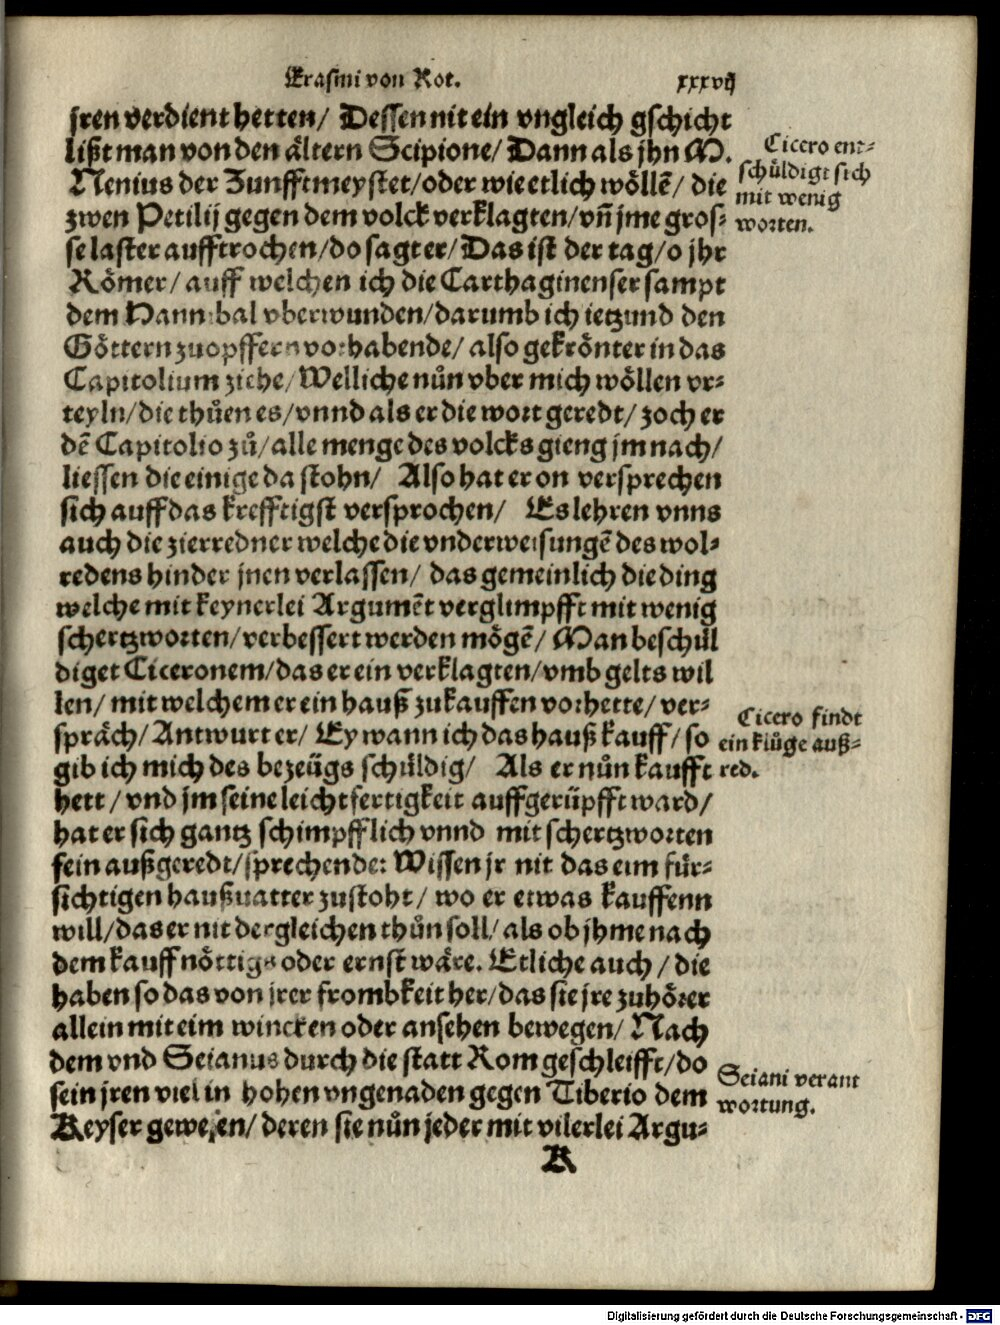 Erasmi von Rot. xxxvij
jren verdient hetten/ Dessen nit ein vngleich gschicht
lißt man von den ältern Scipione/ Dann als jhn M.
Nenius der Zunfftmeystet/ oder wie etlich wöllē/ die
zwen Petilij gegen dem volck verklagten/ vñ jme gros-
se laster aufftrochen/ do sagt er/ Das ist der tag/ o jhr
Römer/ auff welchen ich die Carthaginenser sampt
dem Hannibal vberwunden/ darumb ich ietzund den
Göttern zuopffern vorhabende/ also gekrönter in das
Capitolium ziehe/ Welliche nůn vber mich wöllen vr-
teyln/ die thůen es/ vnnd als er die wort geredt/ zoch er
dē Capitolio zů/ alle menge des volcks gieng jm nach/
liessen die einige da stohn/ Also hat er on versprechen
sich auff das krefftigst versprochen/ Es lehren vnns
auch die zierredner welche die vnderweisungē des wol-
redens hinder jnen verlassen/ das gemeinlich die ding
welche mit keynerlei Argumēt verglimpfft mit wenig
schertzworten/ verbessert werden mögē/ Man beschůl
diget Ciceronem/ das er ein verklagten/ vmb gelts wil
len/ mit welchem er ein hauß zukauffen vorhette/ ver-
spräch/ Antwurt er/ Ey wann ich das hauß kauff/ so
gib ich mich des bezeügs schůldig/ Als er nůn kaufft
hett/ vnd jm seine leichtfertigkeit auffgerüpfft ward/
hat er sich gantz schimpfflich vnnd mit schertzworten
fein außgeredt/ sprechende: Wissen jr nit das eim für-
sichtigen haußuatter zustoht/ wo er etwas kauffenn
will/ das er nit dergleichen thůn soll/ als ob jhme nach
dem kauff nöttigs oder ernst wäre. Etliche auch/ die
haben so das von jrer frombkeit her/ das sie jre zuhörer
allein mit eim wincken oder ansehen bewegen/ Nach
dem vnd Seianus durch die statt Rom geschleifft/ do
sein jren viel in hohen vngenaden gegen Tiberio dem
Keyser gewesen/ deren sie nůn jeder mit vilerlei Argu-
K
Cicero ent-
schůldigt sich
mit wenig
worten.
Cicero findt
ein klůge auß-
red.
Seiani verant
wortung.
Digitalisierung gefördert durch die Deutsche Forschungsgemeinschaft - DFG